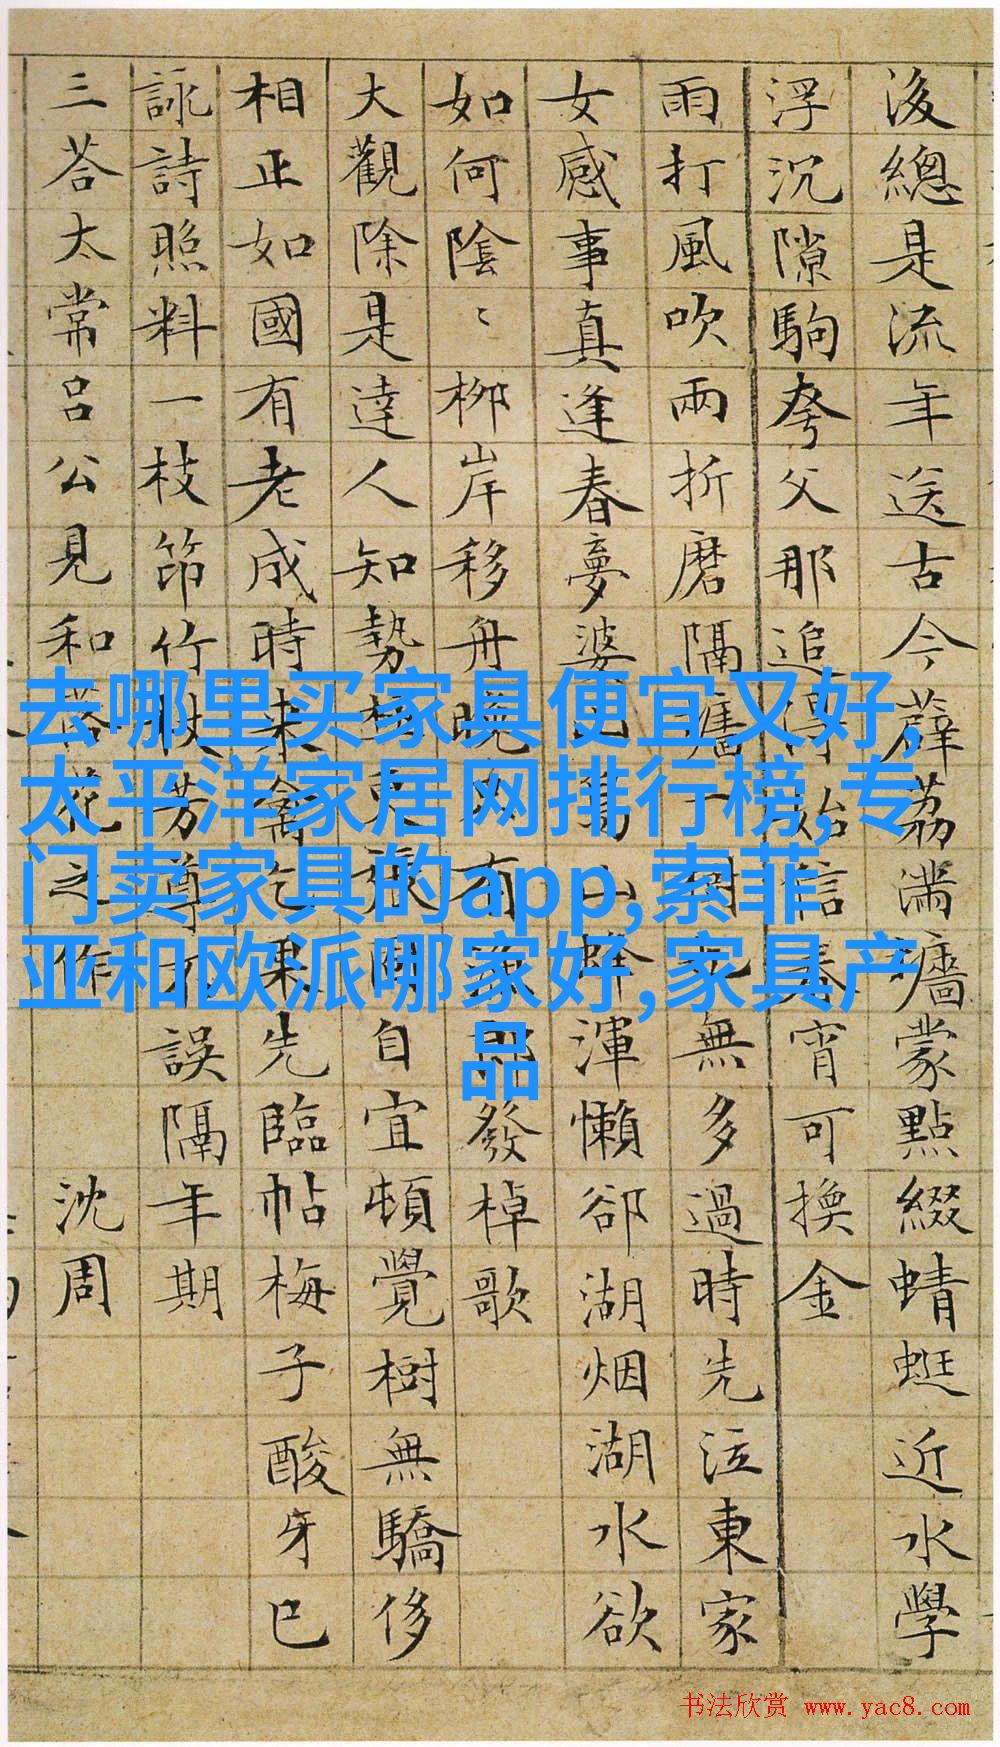 後總是流年送古今薜荔滿牆蒙點綴蜻蜓近水學
浮沉隙駒夸父那追得始信春宵可換金
雨打風吹兩折磨隔舊無多過時先泣東家
女感事真逢春夢婆渾懶卻湖烟湖水欲
如何陰〻柳岸移舟晚有發棹歌
大觀除是達人知勢自宜頓覺樹無驕侈
相正如國有老成時來禽果先臨帖梅子酸牙已
詠詩照料一枝笻竹芳尊誤隔年期
三荅太常呂公見和落花之作
沈周
去哪里买家具便宜又好,
太平洋家居网排行榜,专
门卖家具的app,索菲
亚和欧派哪家好,家具产
品
书法欣赏 www.yac8.com